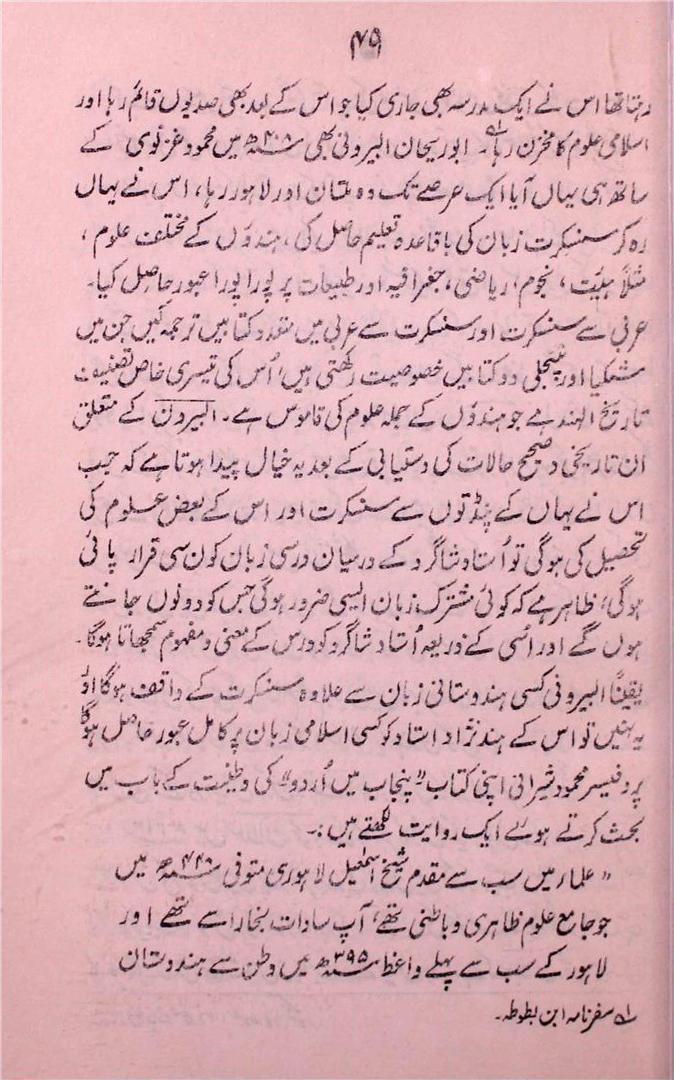 ۴۹
رہتا تھا اس نے ایک مدرسہ بھی جاری کیا جو اس کے بعد بھی صدیوں قائم رہا اور
اسلامی علوم کا مخزن رہا۱؎۔ ابو ریحان البیرونی بھی ۴۰۸ھ میں محمود غزنوی کے
ساتھ ہی یہاں آیا ایک عرصے تک وہ ملتان اور لاہور رہا، اس نے یہاں
رہ کر سنسکرت زبان کی باقاعدہ تعلیم حاصل کی، ہندوؤں کے مختلف علوم،
مثلاً ہیئت، نجوم، ریاضی، جغرافیہ اور طبیعات پر پورا پورا عبور حاصل کیا۔
عربی سے سنسکرت اور سنسکرت سے عربی میں متعدد کتابیں ترجمہ کیں جن میں
سمکیا اور پتنجلی دو کتابیں خصوصیت رکھتی ہیں، اُس کی تیسری خاص تصنیف
تاریخ الہند ہے جو ہندوؤں کے جملہ علوم کی قاموس ہے۔ البیرونی کے متعلق
ان تاریخی و صحیح حالات کی دستیابی کے بعد یہ خیال پیدا ہوتا ہے کہ جب
اس نے یہاں کے پنڈتوں سے سنسکرت اور اس کے بعض علوم کی
تحصیل کی ہوگی تو اُستاد شاگرد کے درمیان درسی زبان کون سی قرار پائی
ہوگی، ظاہر ہے کہ کوئی مشترک زبان ایسی ضرور ہوگی جس کو دونوں جانتے
ہوں گے اور اسی کے ذریعہ اُستاد شاگرد کو درس کے معنی و مفہوم سمجھاتا ہوگا۔
یقیناً البیرونی کسی ہندوستانی زبان سے علاوہ سنسکرت کے واقف ہوگا اور
یہ نہیں تو اس کے ہند نژاد استاد کو کسی اسلامی زبان پر کامل عبور حاصل ہوگا
پروفیسر محمود شیرانی اپنی کتاب "پنجاب میں اُردو" کی وطنیت کے باب میں
بحث کرتے ہوئے ایک روایت لکھتے ہیں:۔
"علماء میں سب سے مقدم شیخ اسمٰعیل لاہوری متوفی ۴۴۸ھ ہیں
جو جامع علوم ظاہری و باطنی تھے، آپ سادات بخارا سے تھے اور
لاہور کے سب سے پہلے واعظ ۳۹۵ھ میں وطن سے ہندوستان
۱؎ سفرنامہ ابن بطوطہ۔